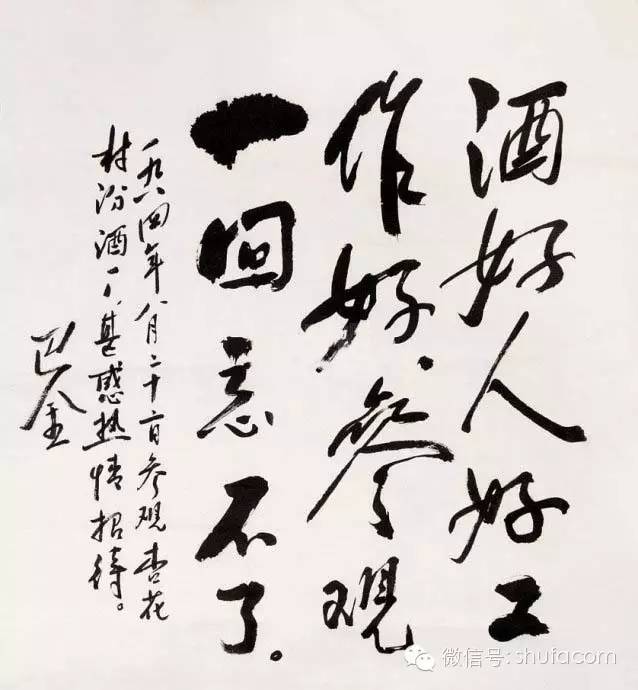 酒好人好工
作好、參观
一回忘不了。
一九八四年八月二十日参观杏花
村汾酒厂,甚感热情招待。
巴金
微信号: shufacom